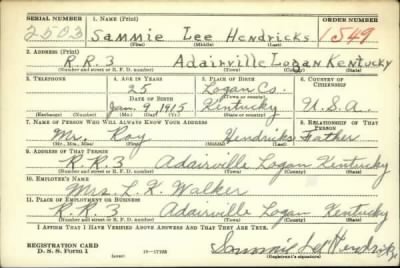 SERIAL NUMBER 1. NAME (Print) ORDER NUMBER
2503 Sammie Lee Hendricks 1549
(First) (Middle) (Last)
2. ADDRESS (Print)
R.R.3 Adairville Logan Kentucky
(Number and street or R. F. D. number) (Town) (County) (State)
3. TELEPHONE 4. AGE IN YEARS 5. PLACE OF BIRTH 6. COUNTRY OF CITIZENSHIP
25 Logan Co.
DATE OF BIRTH (Town or county)
Jan. 9, 1915 Kentucky U.S.A.
(Exchange) (Number) (Mo.) (Day) (Yr.) (State or country)
7. NAME OF PERSON WHO WILL ALWAYS KNOW YOUR ADDRESS 8. RELATIONSHIP OF THAT PERSON
Mr. Roy Hendricks Father
(Mr., Mrs., Miss) (First) (Middle) (Last)
9. ADDRESS OF THAT PERSON
R.R.3 Adairville Logan Kentucky
(Number and street or R. F. D. number) (Town) (County) (State)
10. EMPLOYER'S NAME
Mrs. L. K. Walker
11. PLACE OF EMPLOYMENT OR BUSINESS
R.R.3 Adairville Logan Kentucky
(Number and street or R. F. D. number) (Town) (County) (State)
I AFFIRM THAT I HAVE VERIFIED ABOVE ANSWERS AND THAT THEY ARE TRUE.
REGISTRATION CARD
D. S. S. Form 1 Sammie Lee Hendricks
(Registrant's signature)